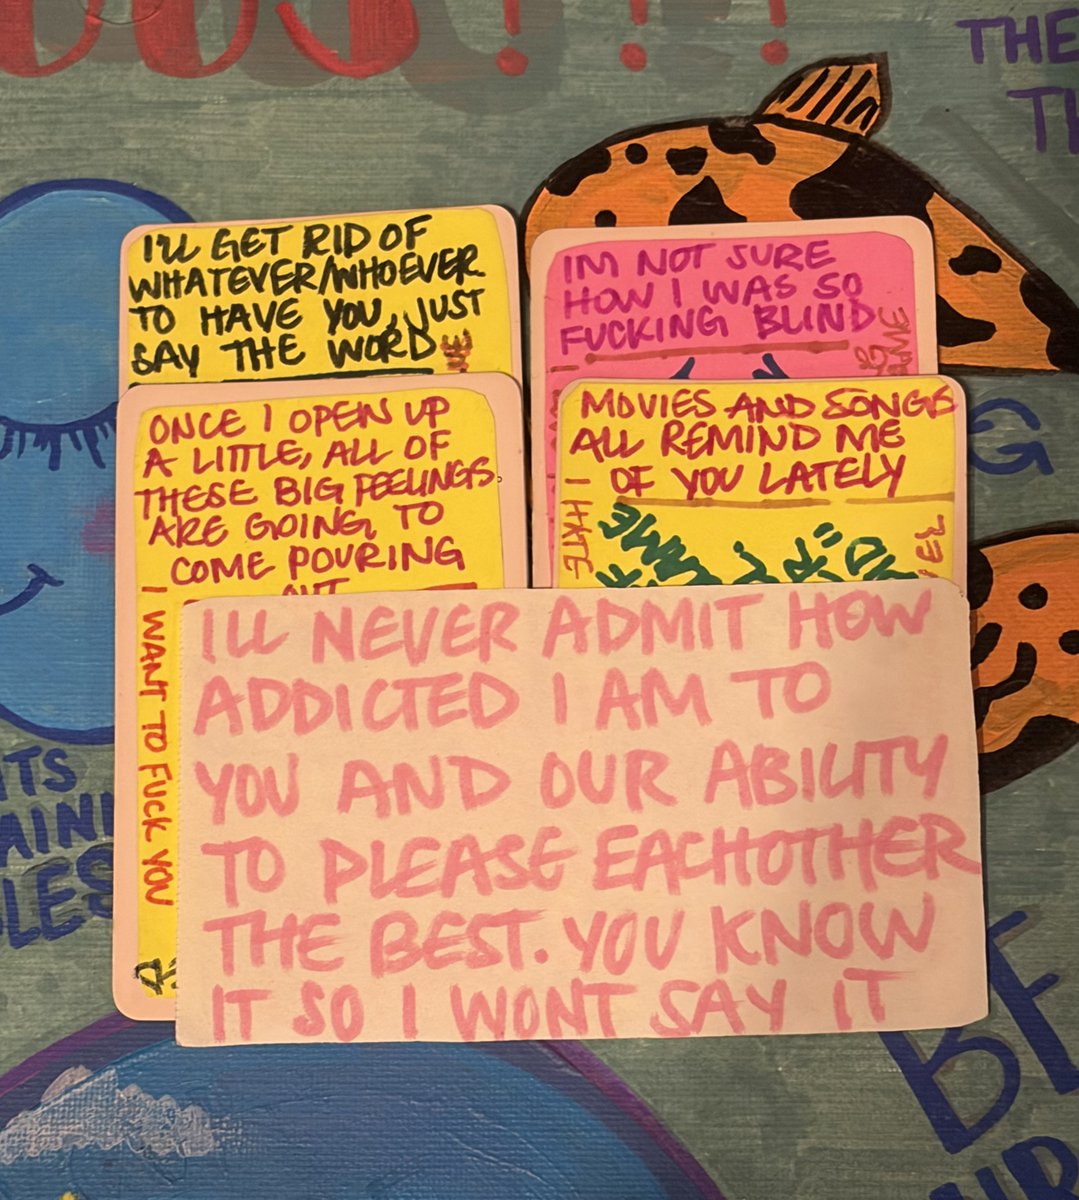 THE
I'LL GET RID OF
WHATEVER/WHOEVER
TO HAVE YOU, JUST
SAY THE WORD
IM NOT SURE
HOW I WAS SO
FUCKING BLIND
ONCE I OPEN UP
A LITTLE, ALL OF
THESE BIG FEELINGS
ARE GOING TO
COME POURING
OUT
I WANT TO FUCK YOU
MOVIES AND SONGS
ALL REMIND ME
OF YOU LATELY
I HATE
I'LL NEVER ADMIT HOW
ADDICTED I AM TO
YOU AND OUR ABILITY
TO PLEASE EACHOTHER
THE BEST. YOU KNOW
IT SO I WONT SAY IT
BE